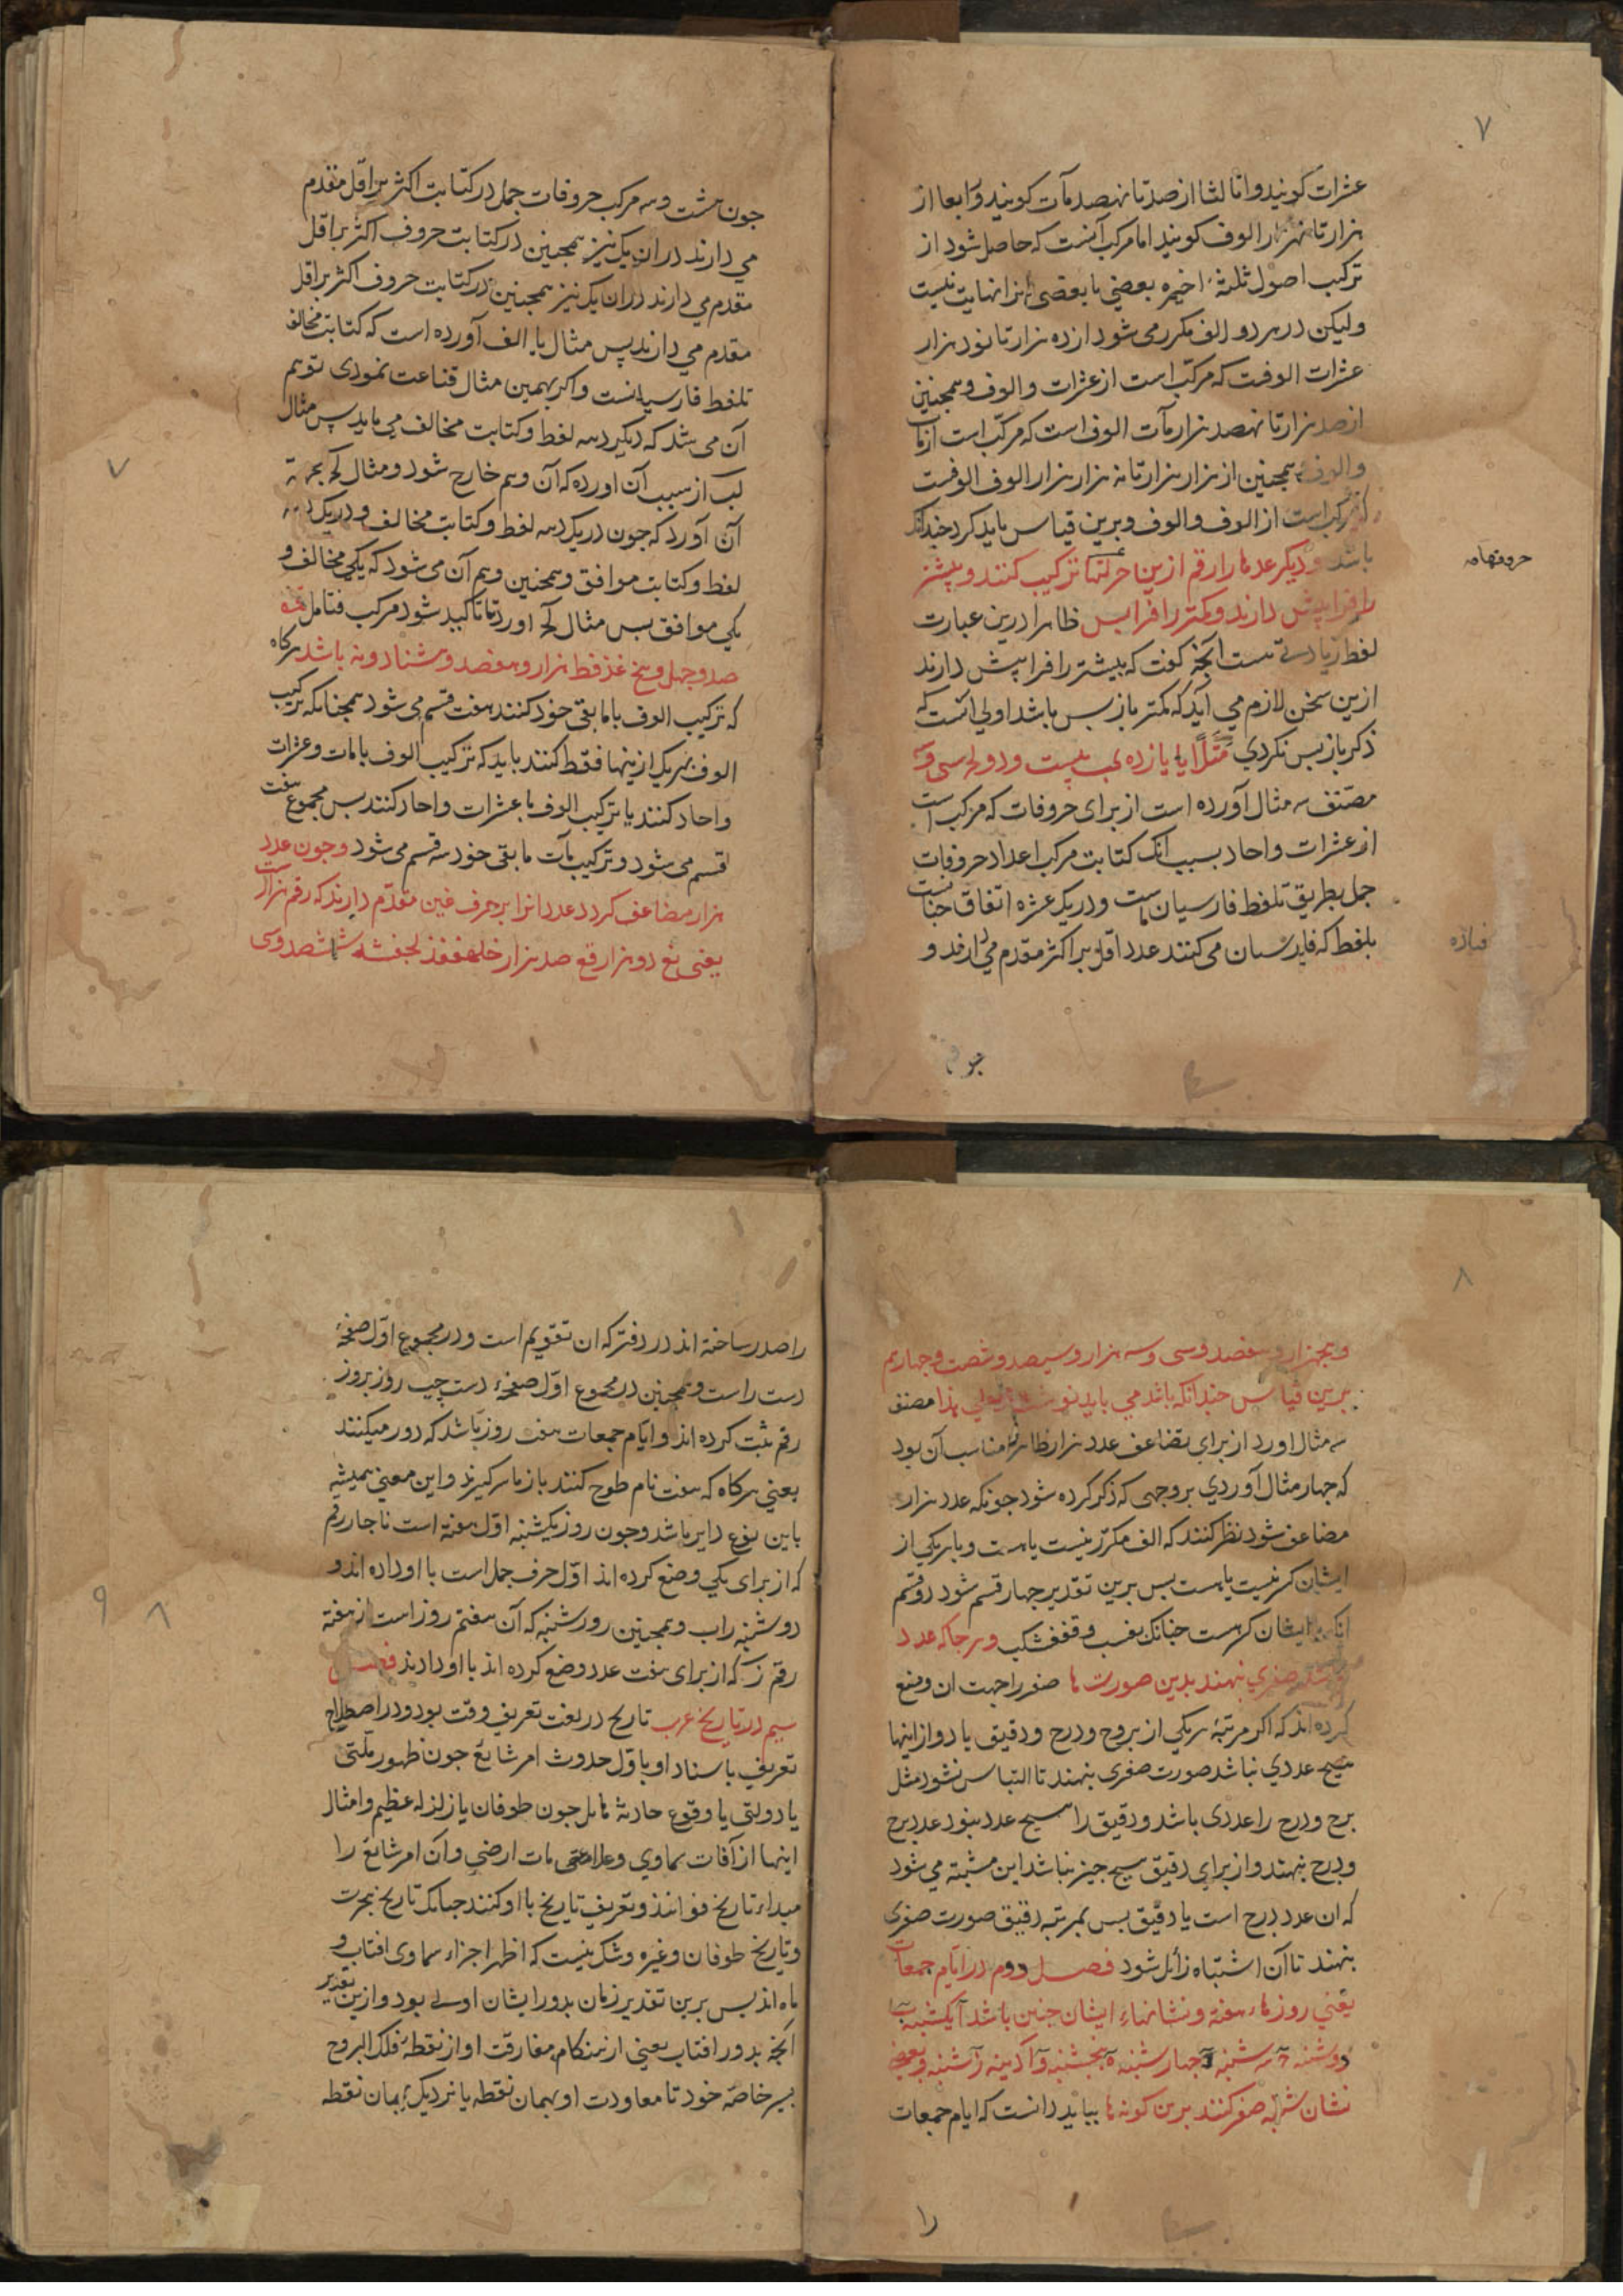 ۷
عشرات کویند و اما لثا از صد تا نهصد مآت کویند و رابعا از
هزار تا نه هزار الوف کویند اما مرکب آنست که حاصل شود از
ترکیب اصول ثلثهٔ اخیره بعضی با بعضی انرا نهایت نیست
ولیکن در هر دو الف مکرر می شود از ده هزار تا نود هزار
عشرات الوفست که مرکب است از عشرات و الوف و همجنین
از صد هزار تا نهصد هزار مآت الوف است که مرکب است از مآت
و الوف و همجنین از هزار هزار تا نه هزار هزار الوف الوفست
که مرکب است از الوف و الوف و برین قیاس باید کرد جندانکه
باشد و دیکر عددها را رقم ازین حرفها ترکیب کنند و بیشتر
را فرا پیش دارند و کمتر را فرا پس ظاهرا درین عبارت
لفظ زیادتی هست آنجه کفت که بیشتر را فرا پیش دارند
ازین سخن لازم می آید که کمتر باز پس باشد اولی آنست که
ذکر باز پس نکردی مثلا یا یازده کب بیست و دو لج سی و سه
مصنف سه مثال آورده است از برای حروفات که مرکب است
از عشرات و احاد بسبب آنک کتابت مرکب اعداد حروفات
جمل بطریق تلفظ فارسیان است و در یک عشره اتفاق جنانست
بلفظ که فارسیان می کنند عدد اقل بر اکثر مقدم می دارند و
حروفهامه
جون
جون هشت و سه مرکب حروفات جمل در کتابت اکثر بر اقل مقدم
می دارند در ان یک نیز همجنین در کتابت حروف اکثر بر اقل
مقدم می دارند در ان یک نیز همجنین در کتابت حروف اکثر بر اقل
مقدم می دارند پس مثال یا الف آورده است که کتابت مخالف
تلفظ فارسیانست و اکر بهمین مثال قناعت نمودی توهم
آن می شد که دیکر دهه لفظ و کتابت مخالف می باید پس مثال
کب از سبب آن اورده که آن وهم خارج شود و مثال لج بجهة
آن آورد که جون در یک دهه لفظ و کتابت مخالف و در یک دهه
لفظ و کتابت موافق و همجنین وهم آن می شود که یکی مخالف و
یکی موافق پس مثال لج اورد تا تاکید شود مرکب فتامل قمه
صد و جهل و پنج غذفط هزار و هفصد و هشتاد و نه باشد هرکاه
که ترکیب الوف با مابقی خود کنند هفت قسم می شود همجنانکه ترکیب
الوف بهر یک از ینها فقط کنند باید که ترکیب الوف با مات و عشرات
و احاد کنند یا ترکیب الوف با عشرات و احاد کنند پس مجموع هفت
قسم می شود و ترکیب مآت مابقی خود سه قسم می شود و جون عدد
هزار مضاعف کردد عدد انرا بر حرف غین مقدم دارند که رقم هزار است
یعنی بغ دو هزار قغ صد هزار
۷
۸
و پنجهزار و هفصد و سی و سه هزار و سیصد و شصت و جهارم
برین قیاس جندانکه باشد می باید نوشت مصنف
سه مثال اورد از برای تضاعف عدد هزار ظاهرا مناسب آن بود
که جهار مثال آوردی بر وجهی که ذکر کرده شود جونکه عدد هزار
مضاعف شود نظر کنند که الف مکرر نیست یا هست و با هر یکی از
ایشان کسر نیست یا هست پس برین تقدیر جهار قسم شود دو قسم
آنکه با ایشان کسر هست جنانک و هر جا که عدد
صفری نهند بدین صورت ها صفر را جهت ان وضع
کرده اند که اکر مرتبهٔ هر یکی از بروج و درج و دقیق یا دو از اینها
هیج عددی نباشد صورت صفری بنهند تا التباس نشود مثل
برج و درج را عددی باشد و دقیق را هیج عدد نبود عدد برج
و درج بنهند و از برای دقیق هیج جیز نباشد این مشتبه می شود
که ان عدد درج است یا دقیق پس بمرتبهٔ دقیق صورت صفری
بنهند تا آن اشتباه زائل شود فصل دوم در ایام جمعات
یعنی روزهاء هفته و نشانهاء ایشان جنین باشد آ یکشنبه ب
دوشنبه ج سه شنبه د جهارشنبه ه پنجشنبه و آدینه ز شنبه و بعضی
نشان شنبه صفر کنند برین کونه ها بباید دانست که ایام جمعات
را
را صدر ساخته اند در دفتر که ان تقویم است و در مجموع اول صفحهٔ
دست راست و همجنین در مجموع اول صفحهٔ دست جپ روز بروز
رقم ثبت کرده اند و ایام جمعات هفت روز باشد که دور میکنند
یعنی هرکاه که هفت نام طرح کنند باز ما سر کیرند و این معنی همیشه
باین نوع دایر باشد و جون روز یکشنبه اول هفته است ناجار رقم
که از برای یکی وضع کرده اند اول حرف جمل است با او داده اند و
دوشنبه را ب و همجنین روز شنبه که آن هفتم روز است از هفته
رقم ز که از برای هفت عدد وضع کرده اند با او دادند فصل
سیم در تاریخ عرب تاریخ در لغت تعریف وقت بود و در اصطلاح
تعریف باسناد او باول حدوث امر شایع جون ظهور ملتی
یا دولتی یا وقوع حادثهٔ هایل جون طوفان یا زلزلهٔ عظیم و امثال
اینها از آفات سماوی و علامات ارضی و آن امر شایع را
مبداء تاریخ خوانند و تعریف تاریخ با او کنند جنانک تاریخ هجرت
و تاریخ طوفان و غیره و شک نیست که اظهر اجزاء سماوی افتاب و
ماه اند پس برین تقدیر زمان بدور ایشان اولی بود و ازین تقدیر
آنجه بدور افتاب یعنی از هنکام مفارقت او از نقطهٔ فلک البروج
بسیر خاصهٔ خود تا معاودت او بهمان نقطه یا نزدیک بهمان نقطه
۸
۹